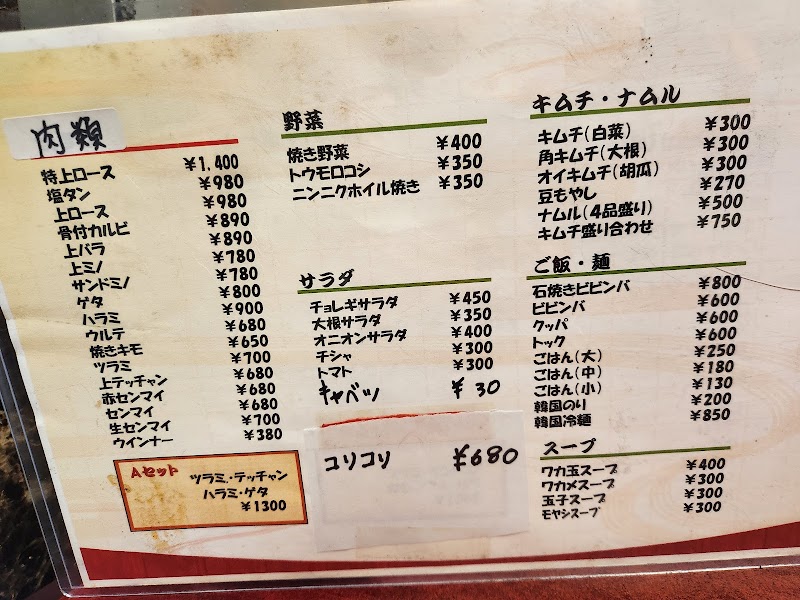 肉類
特上ロース ¥1,400
塩タン ¥980
上ロース ¥980
骨付カルビ ¥890
上バラ ¥890
上ミノ ¥780
サンドミノ ¥780
ゲタ ¥800
ハラミ ¥900
ウルテ ¥680
焼きキモ ¥650
ツラミ ¥700
上テッチャン ¥680
赤センマイ ¥680
センマイ ¥680
生センマイ ¥700
ウインナー ¥380
Aセット
ツラミ・テッチャン
ハラミ・ゲタ
¥1300
野菜
焼き野菜 ¥400
トウモロコシ ¥350
ニンニクホイル焼き ¥350
サラダ
チョレギサラダ ¥450
大根サラダ ¥350
オニオンサラダ ¥400
チシャ ¥300
トマト ¥300
キャベツ ¥30
コリコリ ¥680
キムチ・ナムル
キムチ(白菜) ¥300
角キムチ(大根) ¥300
オイキムチ(胡瓜) ¥300
豆もやし ¥270
ナムル(4品盛り) ¥500
キムチ盛り合わせ ¥750
ご飯・麺
石焼きビビンバ ¥800
ビビンバ ¥600
クッパ ¥600
トック ¥600
ごはん(大) ¥250
ごはん(中) ¥180
ごはん(小) ¥130
韓国のり ¥200
韓国冷麺 ¥850
スープ
ワカ玉スープ ¥400
ワカメスープ ¥300
玉子スープ ¥300
モヤシスープ ¥300